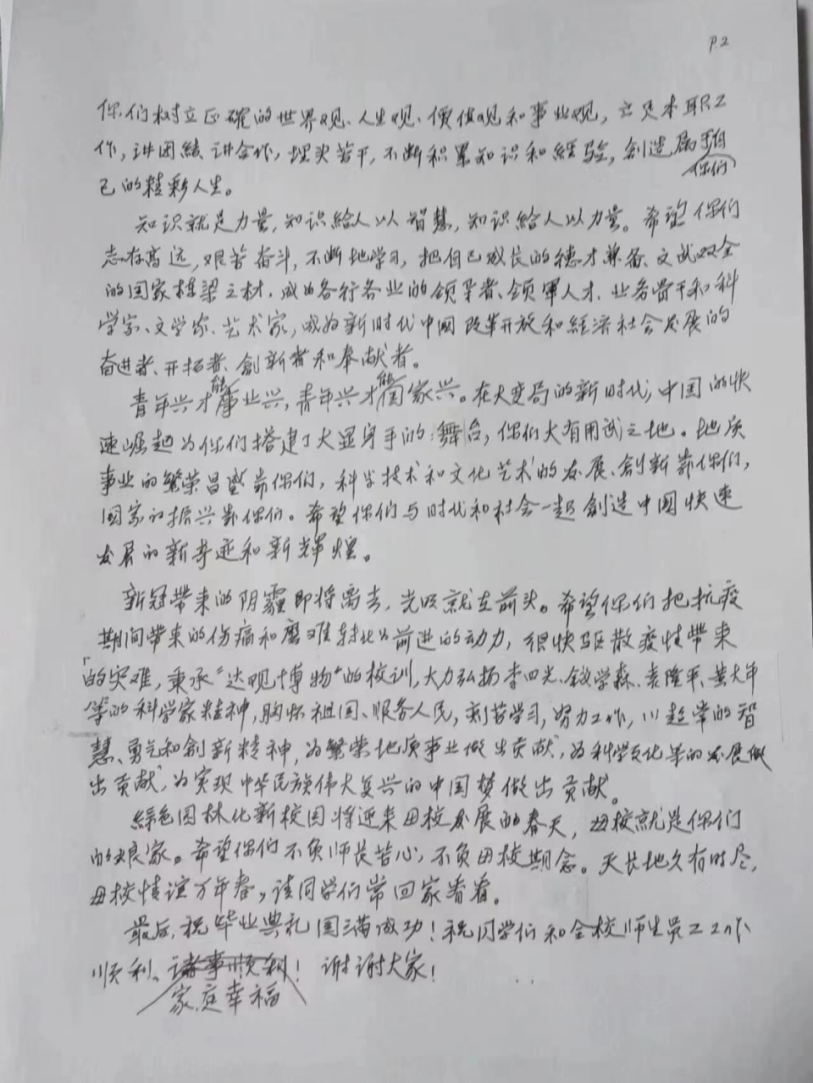 P.2
你们树立正确的世界观、人生观、價值观和事业观，立足本职工
作，讲团结、讲合作，埋头苦干，不断积累知识和經验，創造属于自
你们
己的精彩人生。
知识就是力量，知识給人以智慧，知识給人以力量。希望你们
志存高远，艰苦奋斗，不断地学习，把自己成长的德才兼备、文武双全
的国家栋梁之材，成为各行各业的领导者、领軍人才、业务骨干和科
学家、文学家、艺术家，成为新时代中國改革开放和經济社会发展的
奋进者、开拓者、創新者和奉献者。
能 能
青年兴才事业兴，青年兴才国家兴。在大变局的新时代，中國的快
速崛起为你们搭建了大显身手的舞台，你们大有用武之地。地质
事业的繁荣昌盛靠你们，科学技术和文化艺术的发展、創新靠你们，
国家的振兴靠你们。希望你们与时代和社会一起創造中國快速
发展的新奇迹和新辉煌。
新冠带来的阴霾即将离去，光明就在前头。希望你们把抗疫
期间带来的伤痛和磨难转化为前进的动力，很快驱散疫情带来
的灾难，秉承“达观博物”的校训，大力弘扬李四光、钱学森、袁隆平、黄大年
等的科学家精神，胸怀祖国、服务人民，刻苦学习，努力工作，以超常的智
慧、勇气和創新精神，为繁荣地质事业做出贡献，为科学文化等的发展做
出贡献，为实现中华民族伟大复兴的中国梦做出贡献。
綠色园林化新校园将迎来母校发展的春天，母校就是你们
的娘家。希望你们不负师长苦心，不负母校期念。天长地久有时尽，
母校情谊万年春，请同学们常回家看看。
最后，祝毕业典礼圆满成功！祝同学们和全校师生员工工作
顺利、诸事顺利！谢谢大家！
家庭幸福